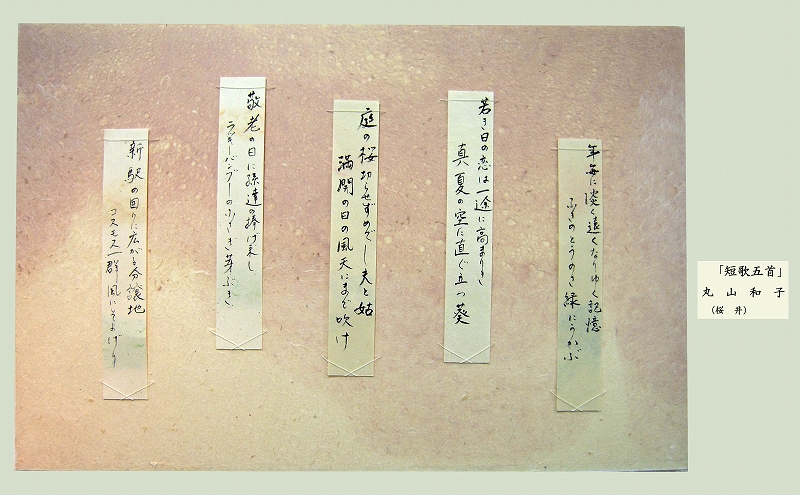 「短歌五首」
丸山和子
(桜井)
年毎に淡く遠くなりゆく記憶
ふきのとうのさ緑にうかぶ
若き日の恋は一途に高まりき
真夏の空に直ぐ立つ葵
庭の桜切らせずめでし夫と姑
満開の日の風天にまで吹け
敬老の日に孫達の捧げ来し
ラッキーバンブーの小さき芽ぶき
新駅の回りに広がる分譲地
コスモス一群風にそよげり